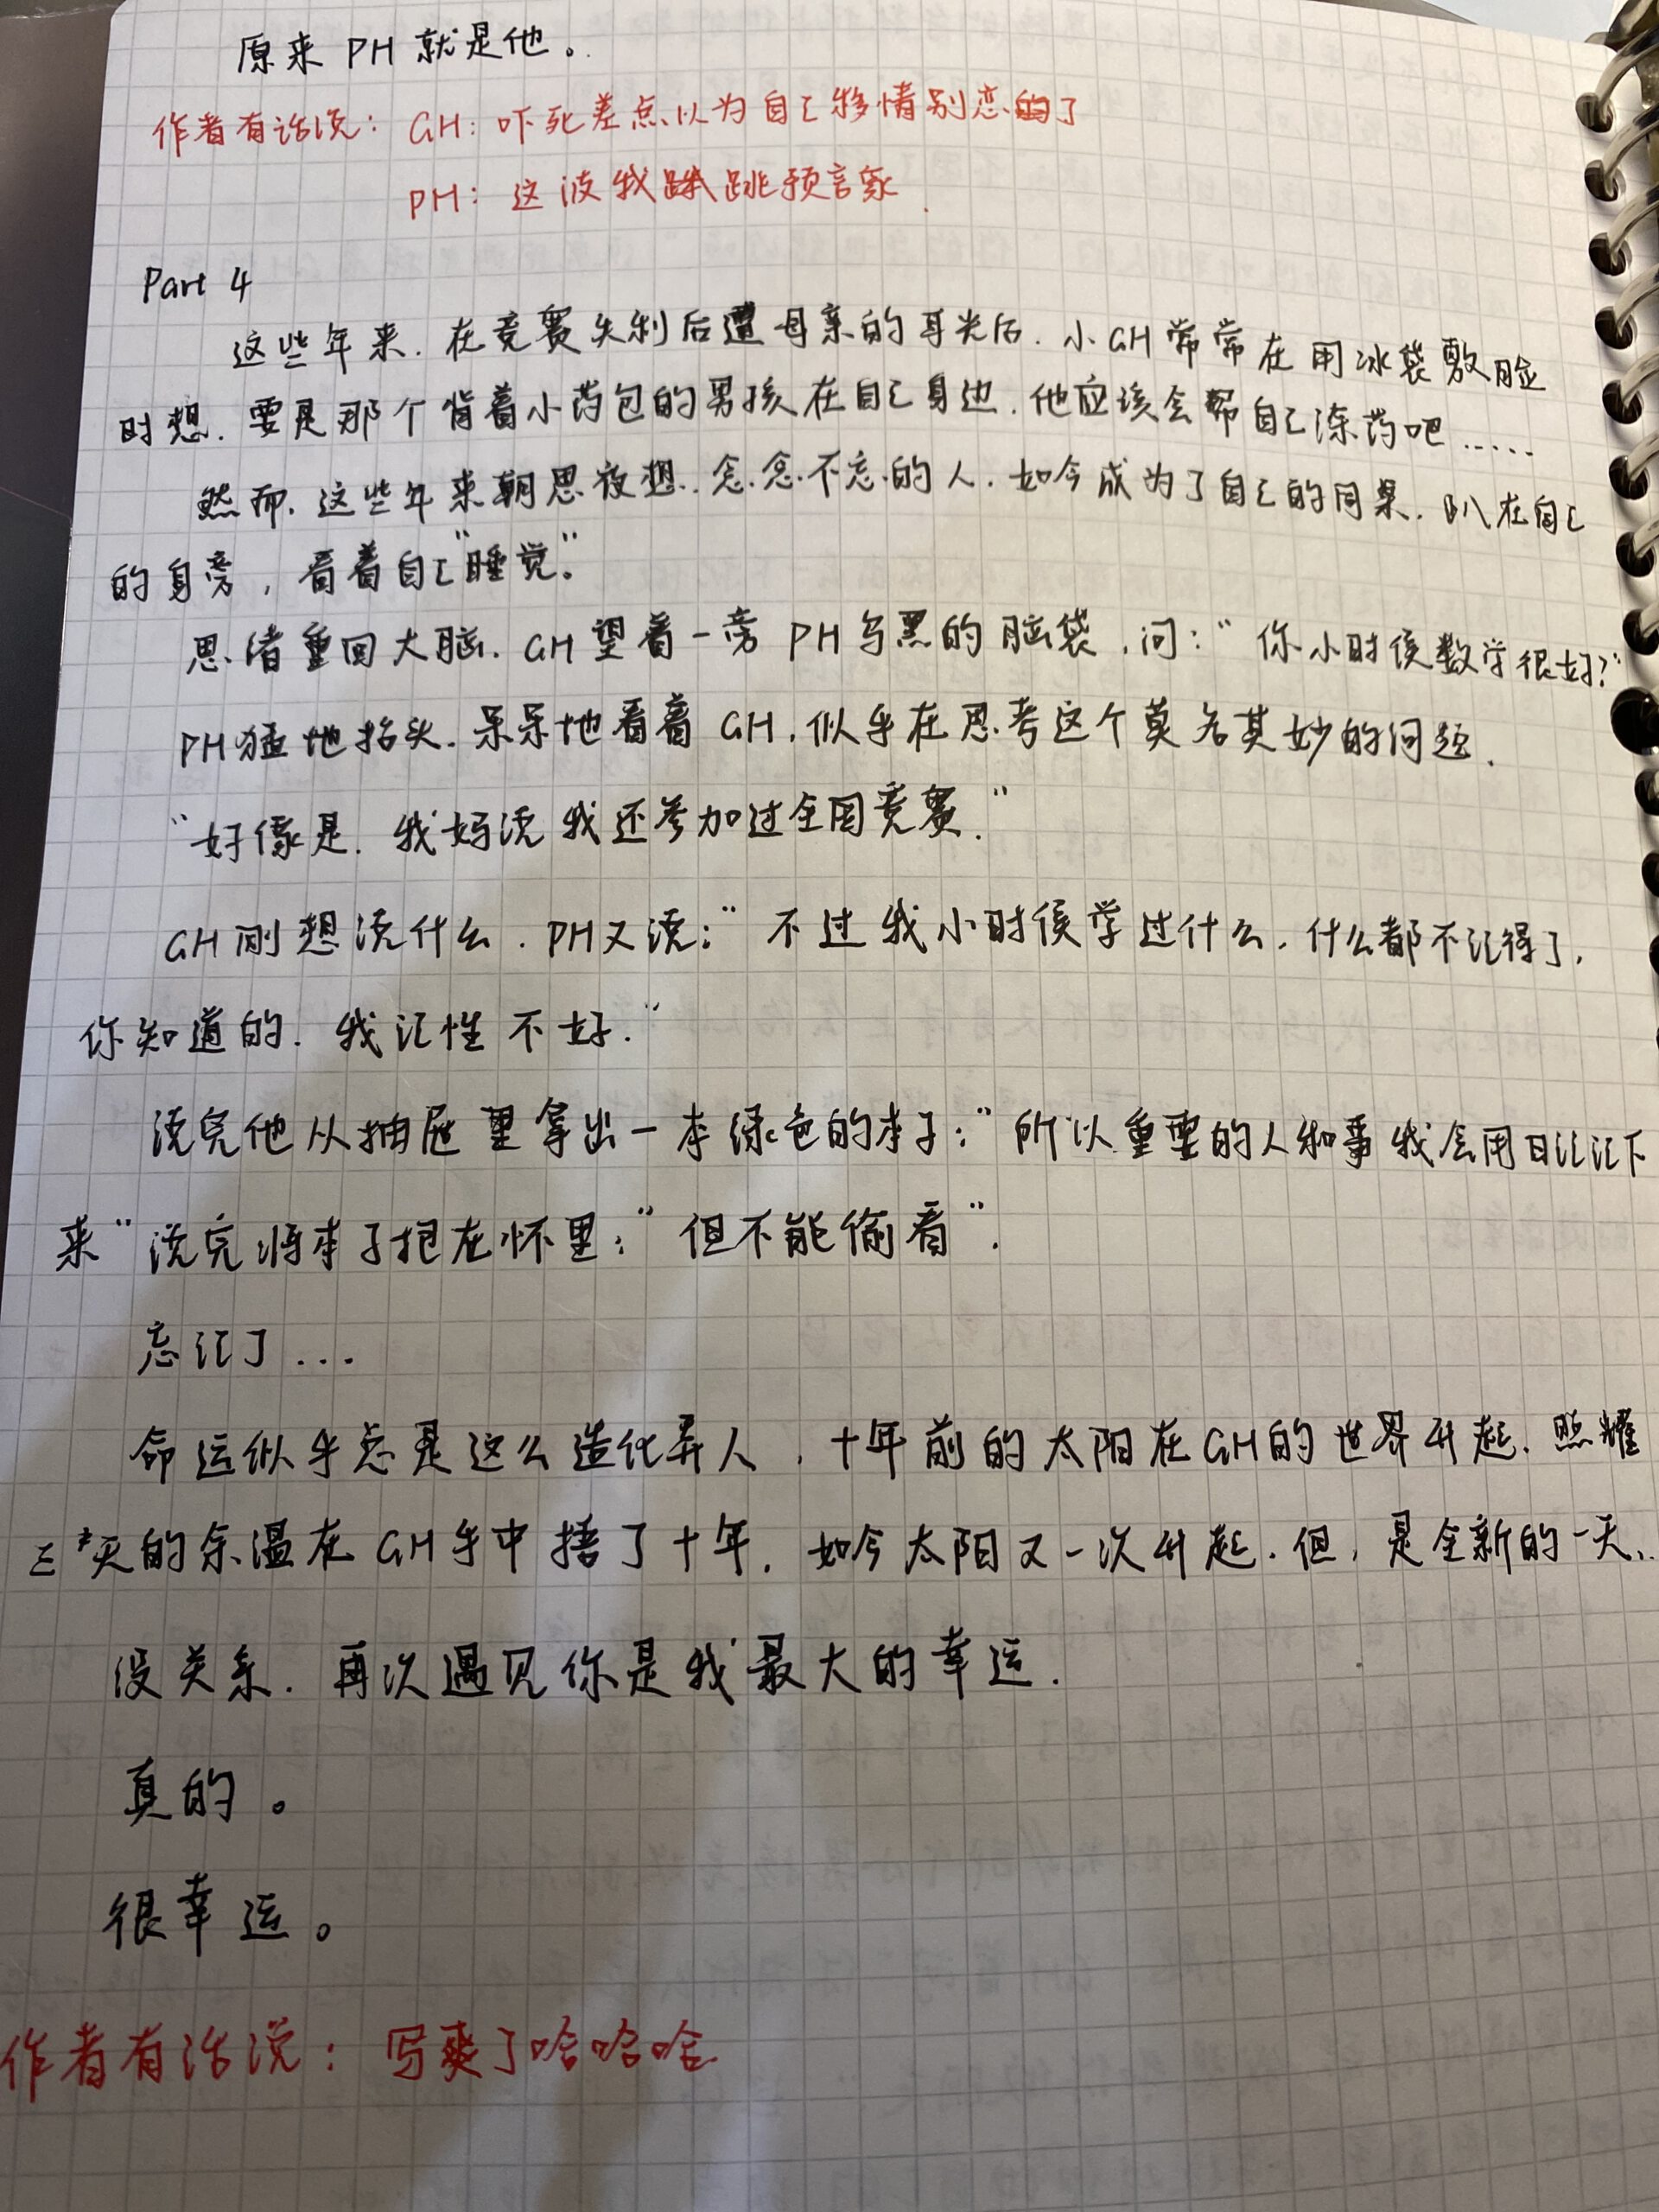 原来 PH 就是他。
作者有话说： GH：吓死差点以为自己移情别恋的了
PH：这波我跳预言家.
Part 4
这些年来.在竞赛失利后遭母亲的耳光后.小GH常常在用冰袋敷脸
时想.要是那个背着小药包的男孩在自己身边.他应该会帮自己涂药吧……
然而.这些年来朝思夜想.念念不忘的人.如今成为了自己的同桌.趴在自己
的身旁，看着自己“睡觉”。
思绪重回大脑.GH望着一旁 PH乌黑的脑袋,问：“你小时候数学很好?”
PH猛地抬头.呆呆地看着 GH.似乎在思考这个莫名其妙的问题.
“好像是.我妈说我还参加过全国竞赛.”
GH刚想说什么.PH又说：“不过我小时候学过什么.什么都不记得了.
你知道的.我记性不好.”
说完他从抽屉里拿出一本绿色的本子：“所以重要的人和事我会用日记记下
来”说完将本子抱在怀里：“但不能偷看”.
忘记了...
命运似乎总是这么造化弄人,十年前的太阳在GH的世界升起.照耀
三天的余温在GH手中捂了十年.如今太阳又一次升起.但,是全新的一天..
没关系.再次遇见你是我最大的幸运.
真的。
很幸运。
作者有话说：写爽了哈哈哈